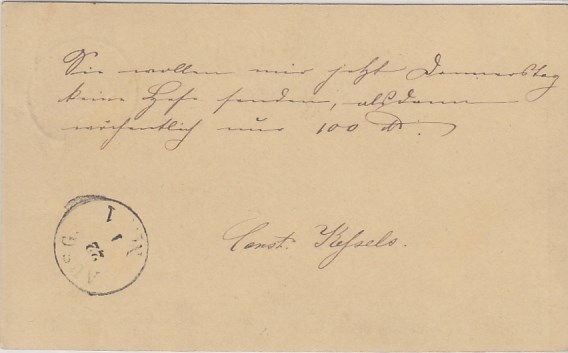 Sie wollen mir jetzt Donnerstag
keine Hefe senden, alsdann
wöchentlich nur 100 ℔.
Const. Kessels.
AUSG.
22
1
1
N